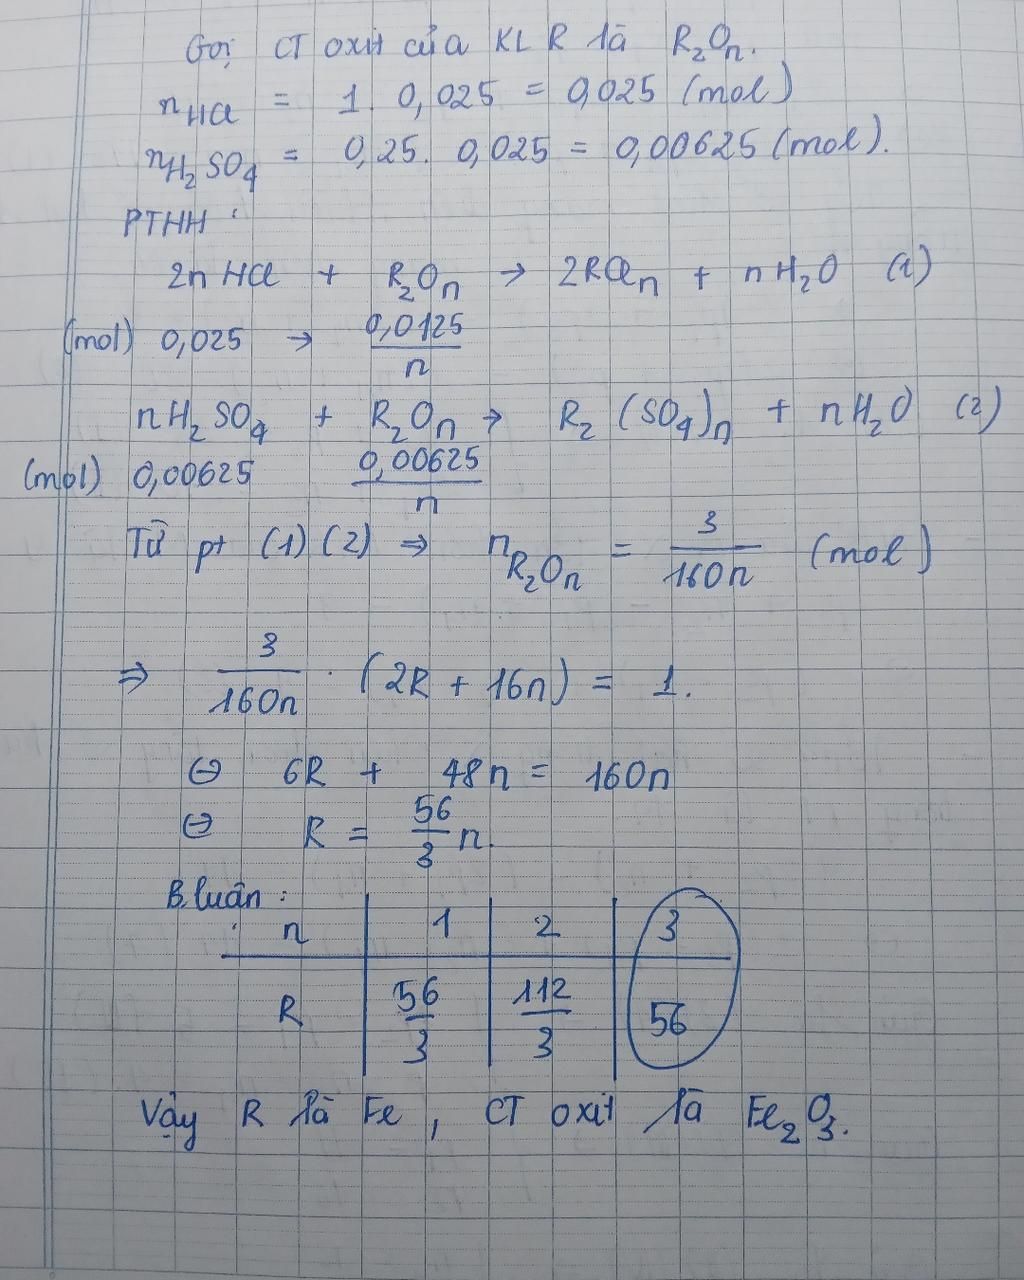 Gọi CT oxit của KL R là R₂Oₙ.
n_HCl = 1. 0,025 = 0,025 (mol)
n_H₂SO₄ = 0,25. 0,025 = 0,00625 (mol).
PTHH :
2n HCl + R₂Oₙ → 2RClₙ + nH₂O (1)
(mol) 0,025 → 0,0125/n
nH₂SO₄ + R₂Oₙ → R₂(SO₄)ₙ + nH₂O (2)
(mol) 0,00625 0,00625/n
Từ pt (1) (2) ⇒ n_R₂Oₙ = 3/160n (mol)
⇒ 3/160n . (2R + 16n) = 1.
⊖ 6R + 48n = 160n
⊖ R = 56/3 n.
B.luận :
n 1 2 3
R 56/3 112/3 56
Vậy R là Fe, CT oxit là Fe₂O₃.